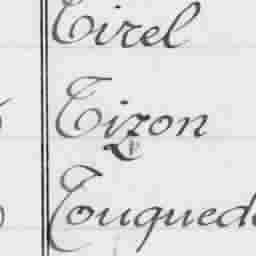 Tirel
Tizon
Touquede